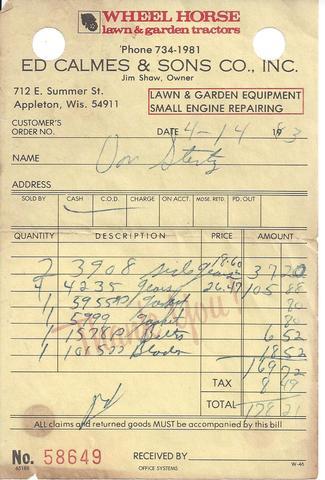 WHEEL HORSE
lawn & garden tractors
'Phone 734-1981
ED CALMES & SONS CO., INC.
Jim Shaw, Owner
712 E. Summer St.
Appleton, Wis. 54911
LAWN & GARDEN EQUIPMENT
SMALL ENGINE REPAIRING
CUSTOMER'S
ORDER NO. DATE 4-14 1983
NAME Don
ADDRESS
SOLD BY CASH C.O.D. CHARGE ON ACCT. MDSE. RETD. PD. OUT
QUANTITY DESCRIPTION PRICE AMOUNT
2 3908 gears 18.60 37 20
4 4235 gears 26.47 105 88
1 Gasket 70
1 5999 Gasket 70
1 6 52
1 18 52
169 72
TAX 8 49
TOTAL 178 21
pd
Thank You
ALL claims and returned goods MUST be accompanied by this bill
No. 58649 RECEIVED BY
65188 OFFICE SYSTEMS W-46